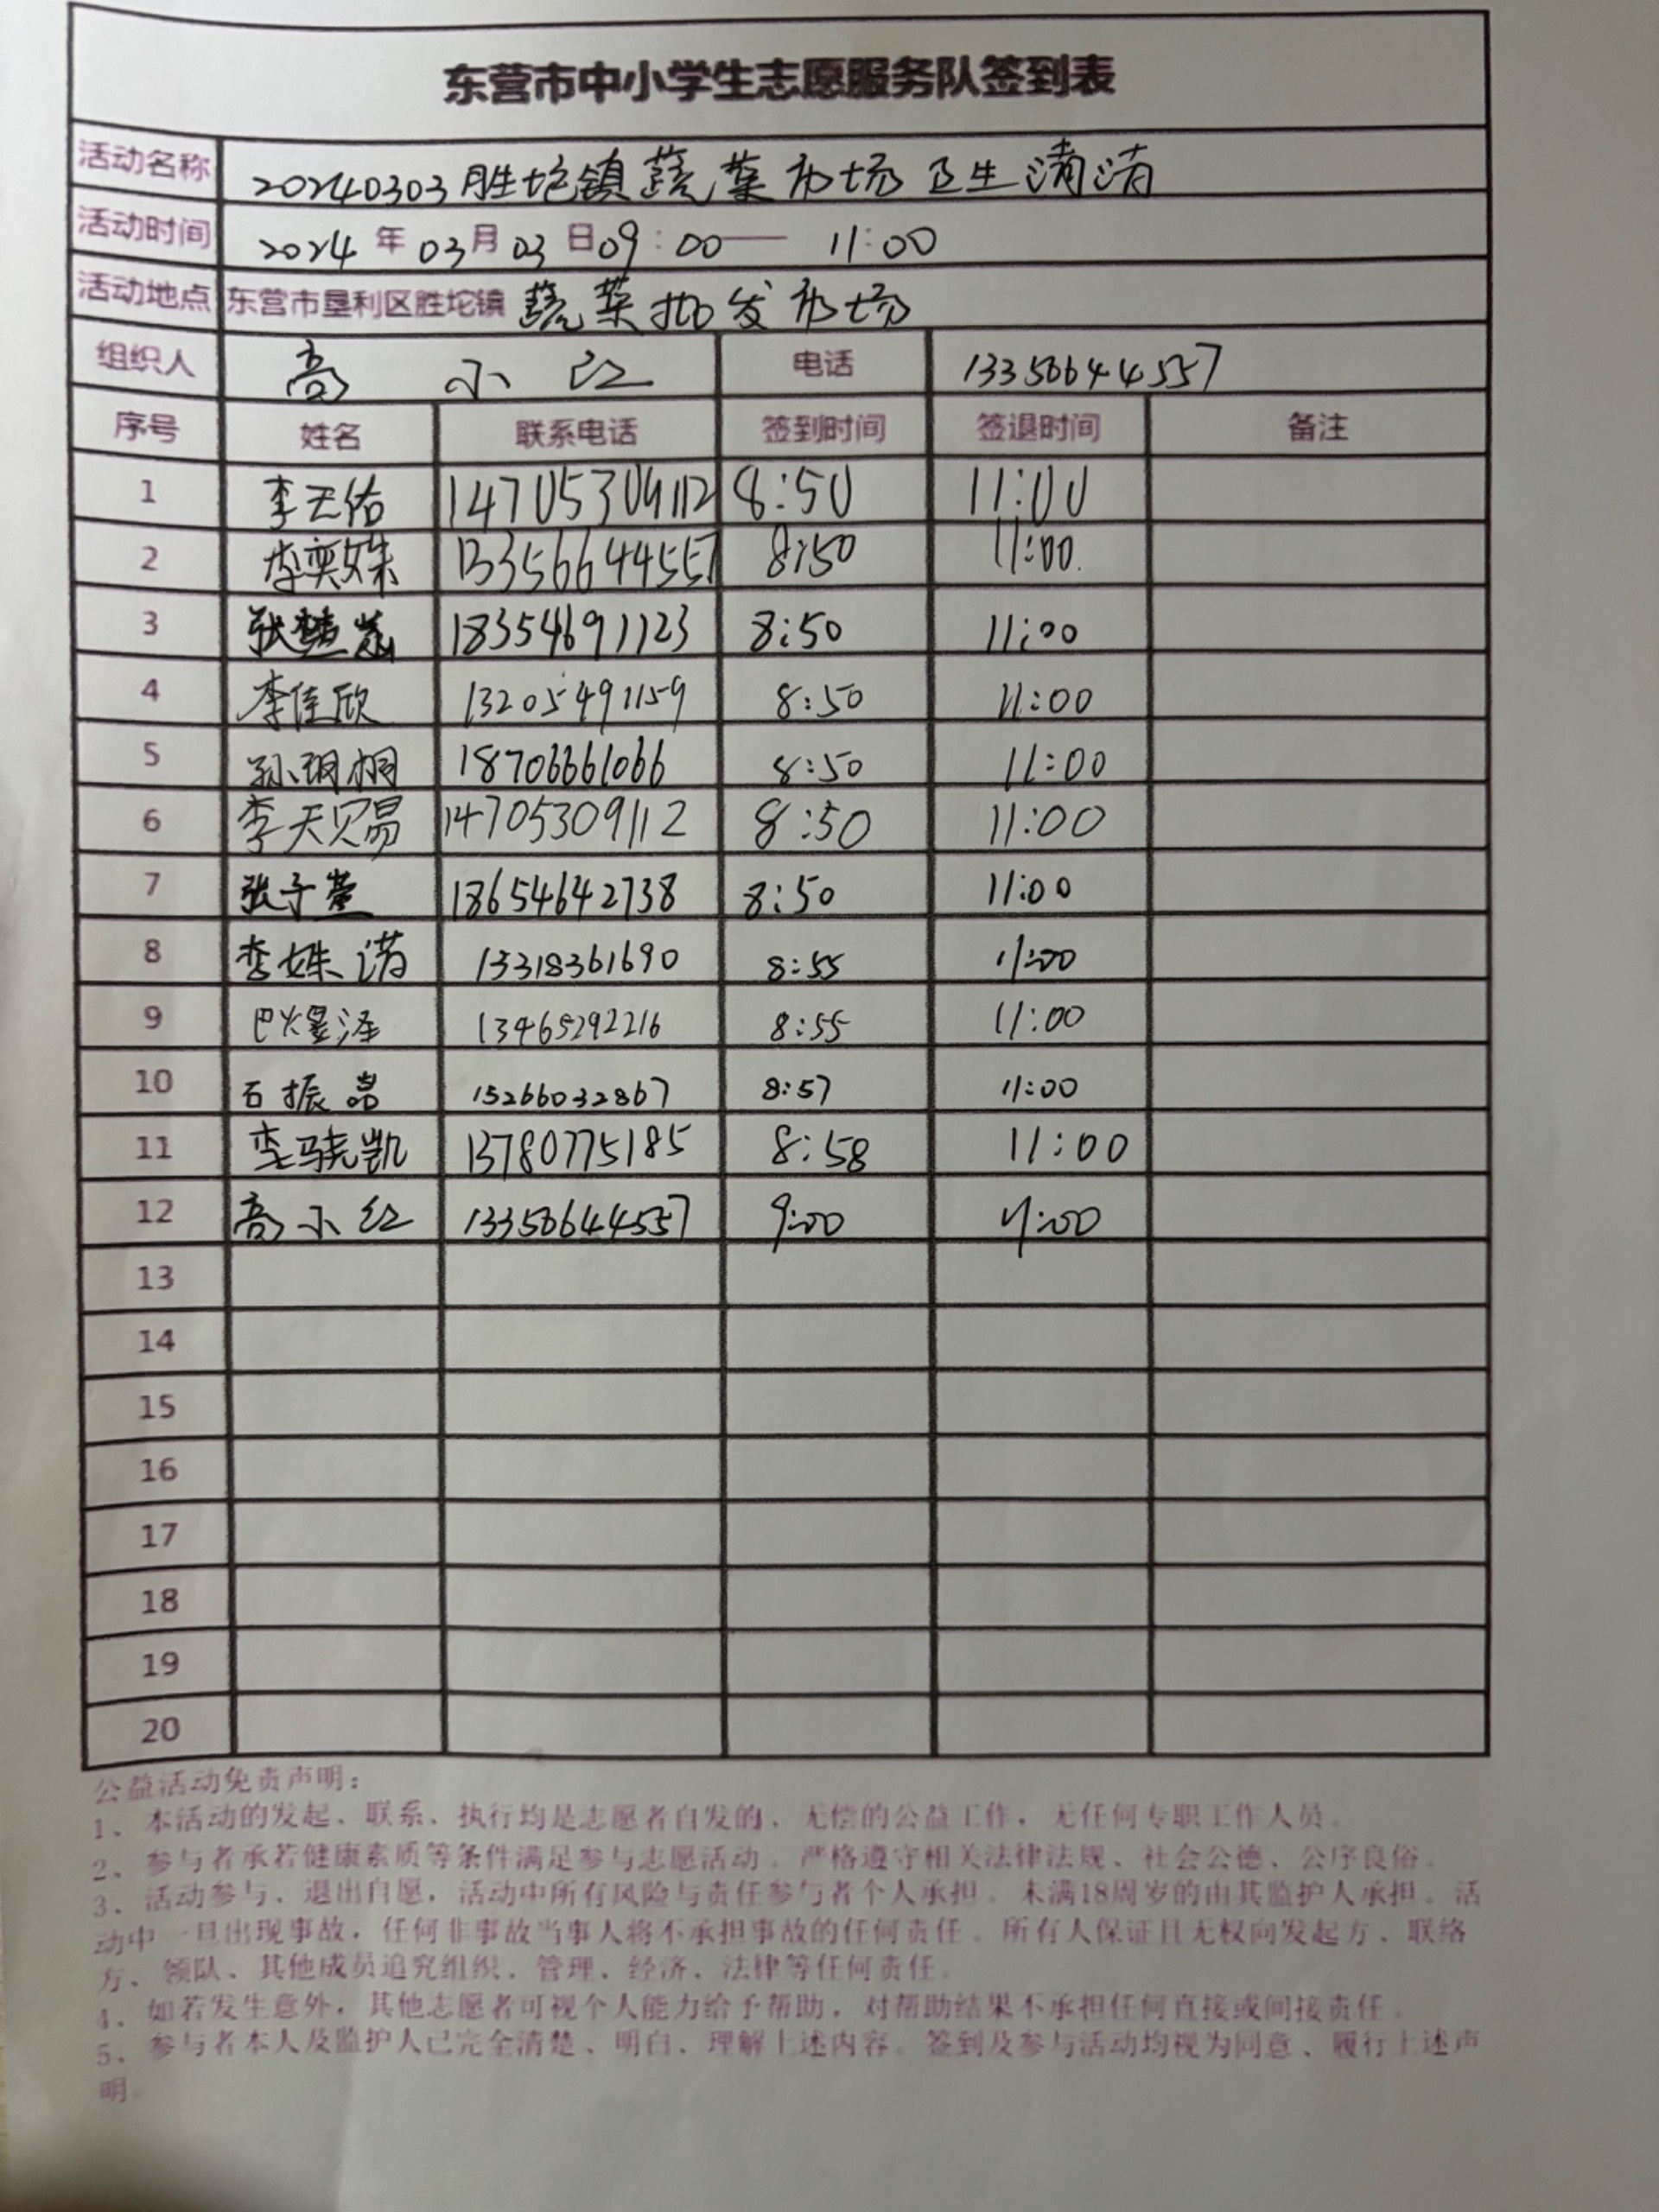 东营市中小学生志愿服务队签到表
活动名称 20240303胜坨镇蔬菜市场卫生清洁
活动时间 2024年03月03日09:00—11:00
活动地点 东营市垦利区胜坨镇蔬菜批发市场
组织人 高小红 电话 13356644557
序号 姓名 联系电话 签到时间 签退时间 备注
1 李天佑 14705309112 8:50 11:00
2 李奕姝 13356644557 8:50 11:00
3 张楚 18354691123 8:50 11:00
4 李佳欣 13205491159 8:50 11:00
5 孙玥桐 18706661066 8:50 11:00
6 李天赐 14705309112 8:50 11:00
7 张子萱 18654642738 8:50 11:00
8 李姝诺 13318361690 8:55 11:00
9 巴煜泽 13465292216 8:55 11:00
10 石振 15266032867 8:57 11:00
11 李骁凯 13780775185 8:58 11:00
12 高小红 13356644557 9:00 11:00
13
14
15
16
17
18
19
20
公益活动免责声明：
1、本活动的发起、联系、执行均是志愿者自发的、无偿的公益工作，无任何专职工作人员。
2、参与者承若健康素质等条件满足参与志愿活动。严格遵守相关法律法规、社会公德、公序良俗。
3、活动参与、退出自愿，活动中所有风险与责任参与者个人承担。未满18周岁的由其监护人承担。活
动中一旦出现事故，任何非事故当事人将不承担事故的任何责任。所有人保证且无权向发起方、联络
方、领队、其他成员追究组织、管理、经济、法律等任何责任。
4、如若发生意外，其他志愿者可视个人能力给予帮助，对帮助结果不承担任何直接或间接责任。
5、参与者本人及监护人已完全清楚、明白、理解上述内容。签到及参与活动均视为同意、履行上述声
明。